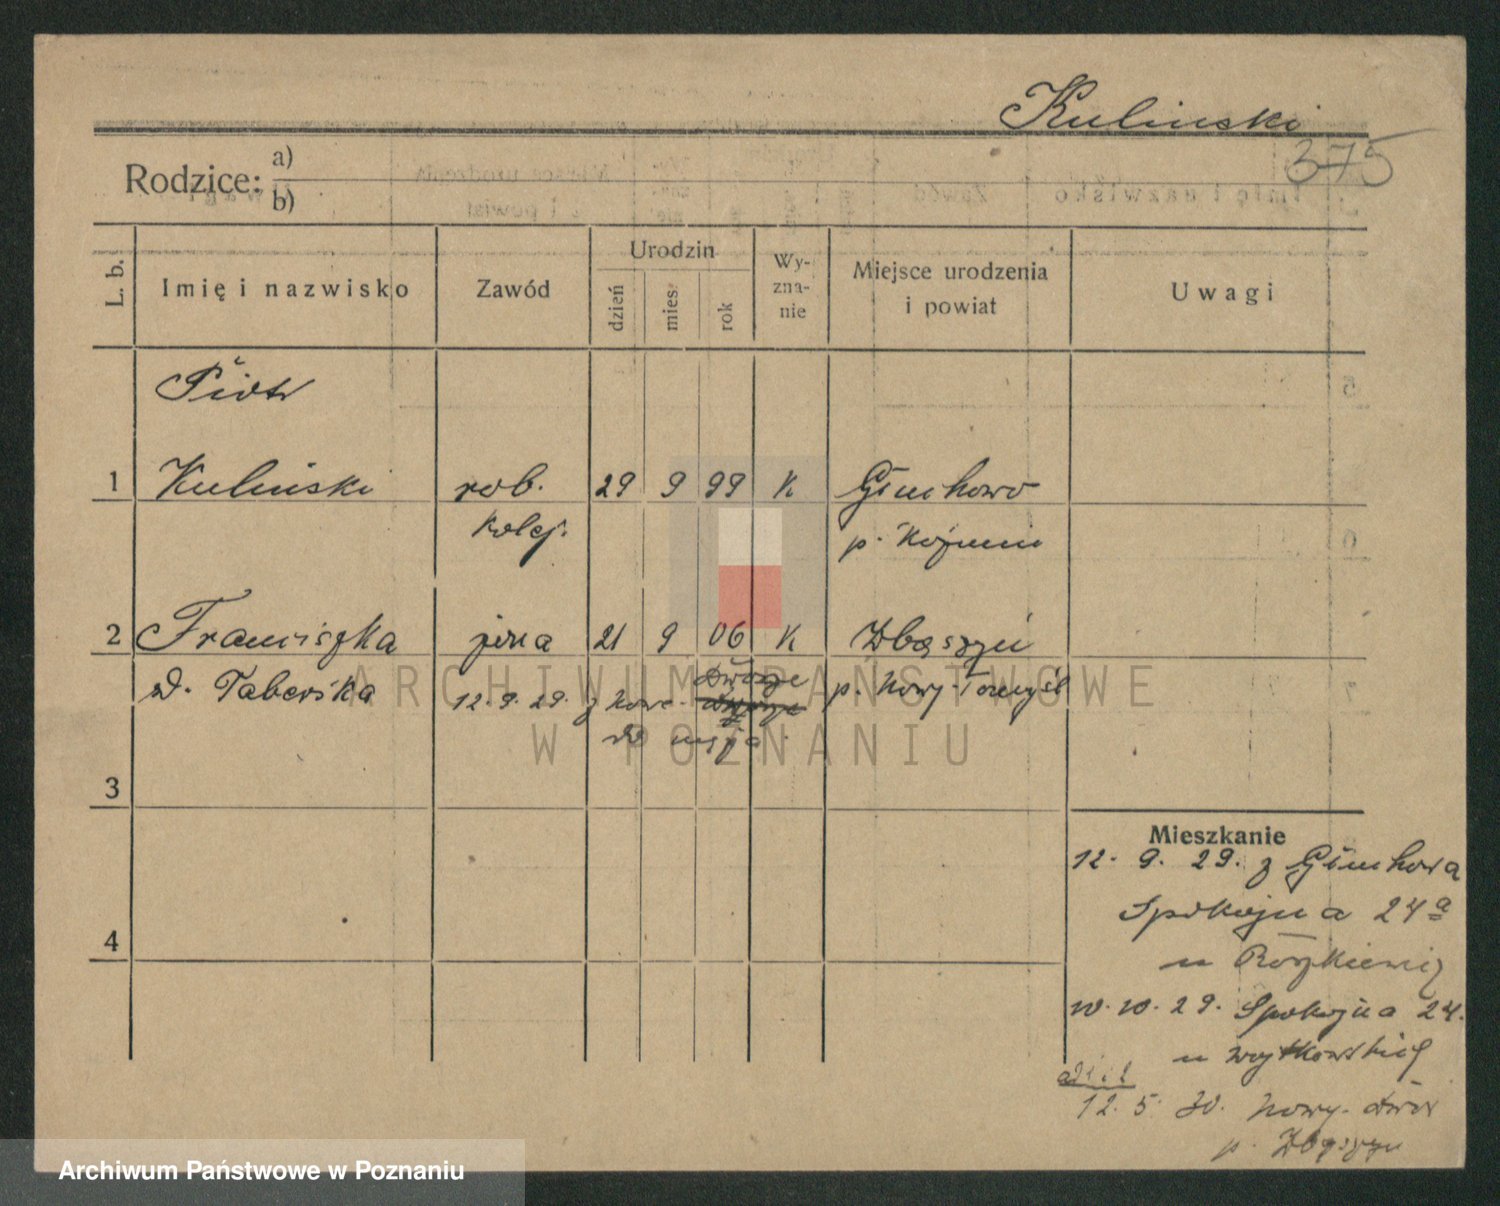 Kulinski
375
Rodzice: a)
b)
L. b.
Imię i nazwisko
Zawód
Urodzin
dzień
mies.
rok
Wy-
zna-
nie
Miejsce urodzenia
i powiat
Uwagi
Piotr
1 Kuliński rob. 29 9 99 K
kolej.
2 Franciszka żona 21 9 06 K Zbąszyń
d. Taberska p. Nowy-Tomyśl
12.9.29. z Nowe-
do męża
3
4
Mieszkanie
12. 9. 29. z
Spokojna 24a
u
10. 10. 29. Spokojna 24.
u
12. 5. 30. Nowy-dwór
p. Zbąszyn
ARCHIWUM PAŃSTWOWE
W POZNANIU
Archiwum Państwowe w Poznaniu